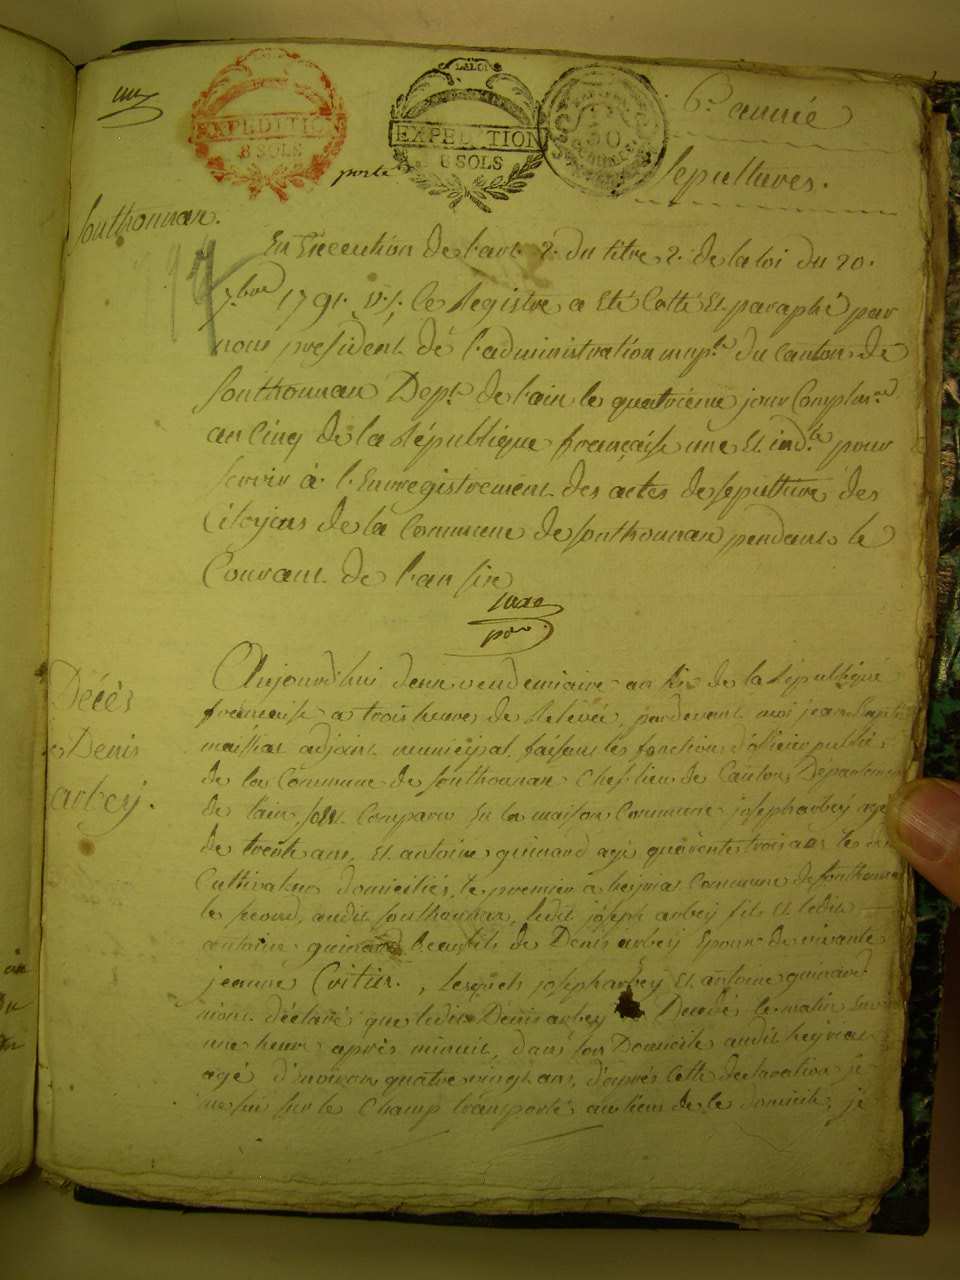 une
LA LOI
EXPEDITION
8 SOLS
LA LOI
EXPEDITION
8 SOLS
50
6e année
porte
Sepultures.
Southonnax.
En Execution de l'art. 2. du titre 2. de la loi du 20.
7bre 1791. v. s. le Registre a Eté Cotté Et paraphé par
nous président de l'administration mnple du canton de
Southonnax Dept. de l'ain le quatrième jour Complre
an Cinq de la République française une Et indle pour
servir à l'Enregistrement des actes de sepulture des
Citoyens de la Commune de Southonnax pendant le
Courant de l'an six
Décès
Denis
arbey.
Aujourd'hui deux vendemiaire an six de la République
française a trois heures de Relevée, pardevant moi jean
adjoint municipal faisant les fonction d'officier public
de la Commune de Southonnax Chef lieu de Canton Département
de l'ain, sont Comparus En la maison Commune joseph arbey agé
de trente ans, Et antoine guinard agé quarente trois ans
Cultivateur domiciliés, le premier a heyriat Commune de Southonnax
le second, audit Southonnax, ledit joseph arbey fils Et ledit
antoine guinard beaufils de Denis arbey Epoux de vivante
jeanne, lesquels joseph arbey Et antoine guinard
m'ont déclaré que ledit Denis arbey Decedé le matin Environ
une heure après minuit, dans son Domicile audit heyriat
agé d'Environ quatre vingt ans, d'après cette declaration je
me suis sur le Champ transporté au lieu de le domicile, je